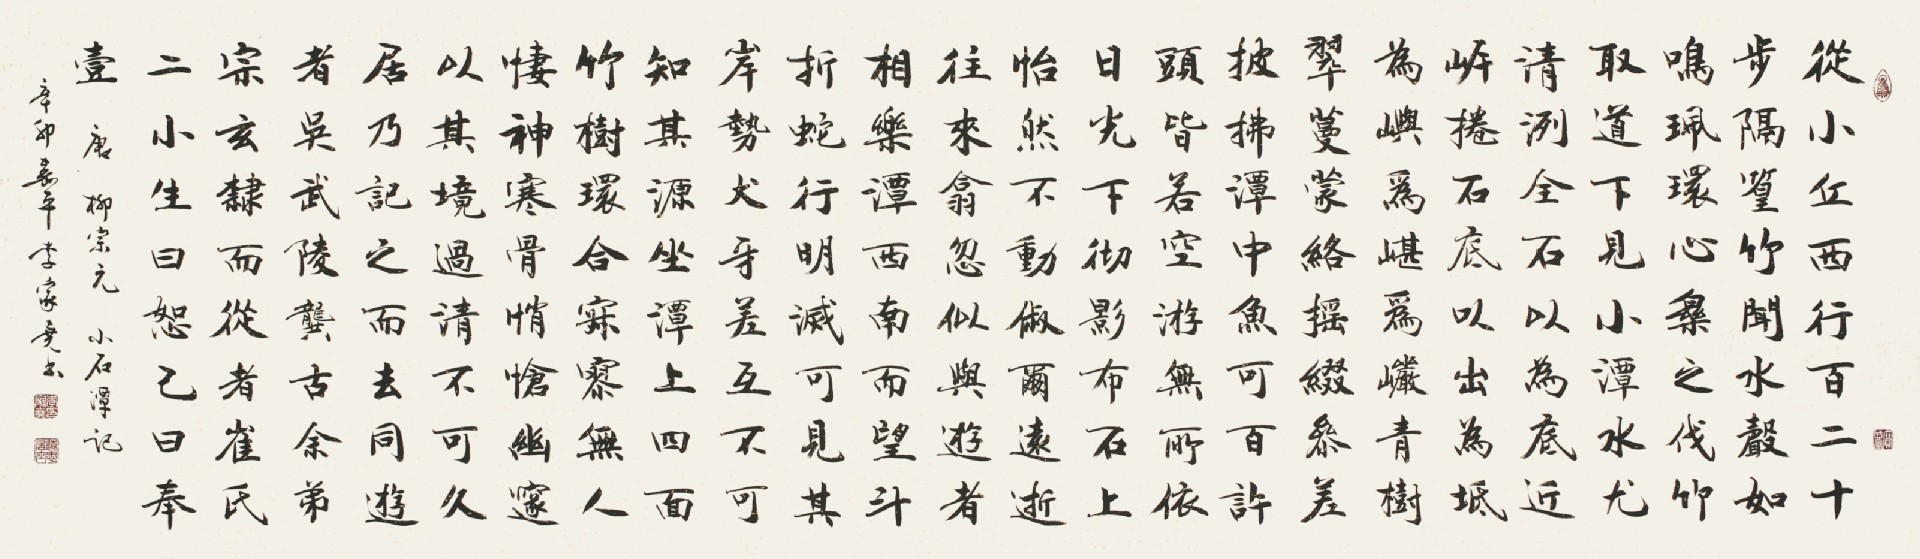 從小丘西行百二十
步隔篁竹聞水聲如
鳴珮環心樂之伐竹
取道下見小潭水尤
清洌全石以為底近
岸捲石底以出為坻
為嶼爲嵁爲巖青樹
翠蔓蒙絡搖綴參差
披拂潭中魚可百許
頭皆若空游無所依
日光下彻影布石上
怡然不動俶爾遠逝
往來翕忽似與遊者
相樂潭西南而望斗
折蛇行明滅可見其
岸勢犬牙差互不可
知其源坐潭上四面
竹樹環合寂寥無人
悽神寒骨悄愴幽邃
以其境過清不可久
居乃記之而去同遊
者吳武陵龔古余弟
宗玄隸而從者崔氏
二小生曰恕己曰奉
壹 唐 柳宗元 小石潭記
辛卯 李家尭书